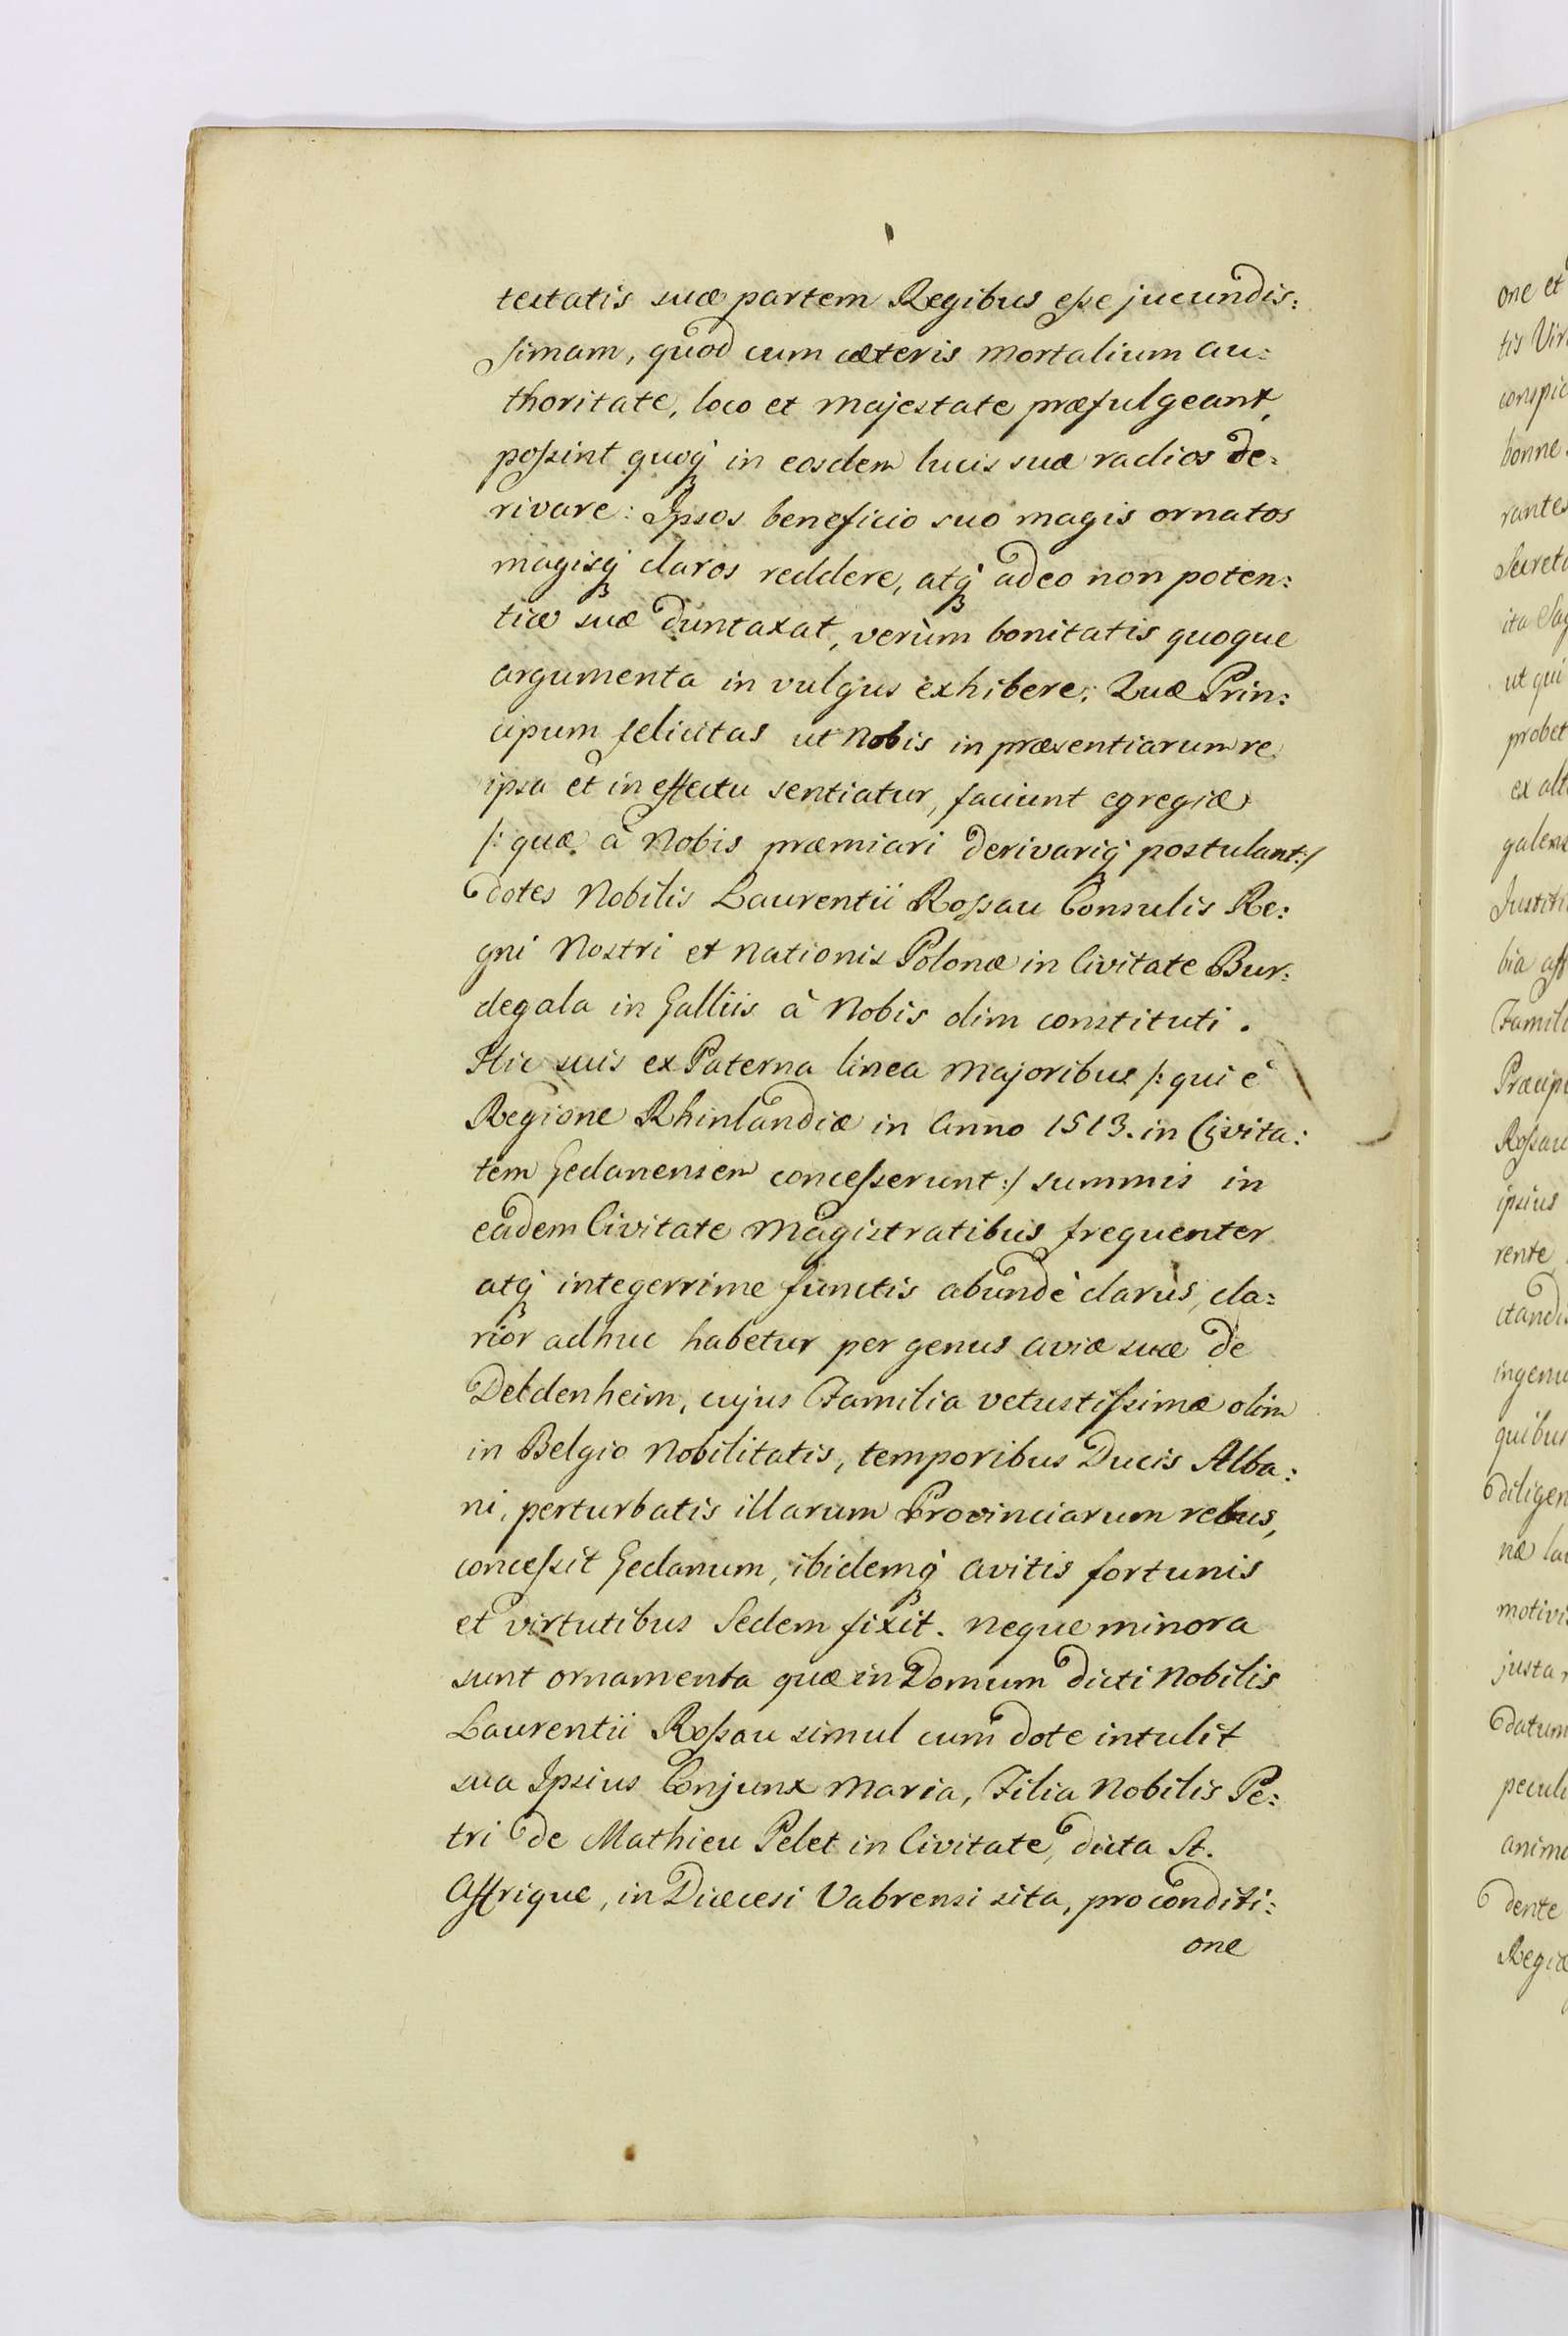 testatis suæ partem Regibus eſse jucundis:
simam, quod cum cæteris mortalium au:
thoritate, loco et Majestate præfulgeant,
poſsint quoq́ꝫ in eosdem lucis suæ radios de:
rivare: Ipsos beneficio suo magis ornatos
magisq́ꝫ claros reddere, atq́ꝫ adeo non poten:
tiæ suæ duntaxat, verùm bonitatis quoque
argumenta in vulgus exhibere; Quæ Prin:
cipum felicitas ut Nobis in præsentiarum re
ipsa et in effectu sentiatur, faciunt egregiæ
/: quæ à Nobis præmiari derivariq́ꝫ postulant:/
dotes Nobilis Laurentii Roſsau Consulis Re:
gni Nostri et Nationis Polonæ in Civitate Bur:
degala in Galliis à Nobis olim constituti.
Hic suis ex Paterna linea Majoribus /: qui è
Regione Rhinlandiæ in Anno 1513. in Civita:
tem Gedanensem conceſserunt :/ summis in
eadem Civitate Magistratibus frequenter
atq́ꝫ integerrime functis abundè clarus, cla:
rior adhuc habetur per genus aviæ suæ de
Deldenheim, cujus Familia vetustiſsimæ olim
in Belgio Nobilitatis, temporibus Ducis Alba:
ni, perturbatis illarum Provinciarum rebus,
conceſsit Gedanum, ibidemq́ꝫ avitis fortunis
et virtutibus Sedem fixit. Neque minora
sunt ornamenta quæ in Domum dicti Nobilis
Laurentii Roſsau simul cum dote intulit
sua Ipsius Conjunx Maria, Filia Nobilis Pe:
tri de Mathieu Pelet in Civitate, dicta St.
Affrique, in Diæcesi Vabrensi sita, pro conditi:
one
one et
tis Vir
conspic
bonne
rantes
Secret
ita Sag
ut qui
probet
ex alt
galens
Justiti
bia aff
Famili
Præcip
Roſsau
ipsius
rente
ctandi
ingenu
quibus
diligen
næ la
motivi
justa
datum
peculi
anim
dente
Regiæ